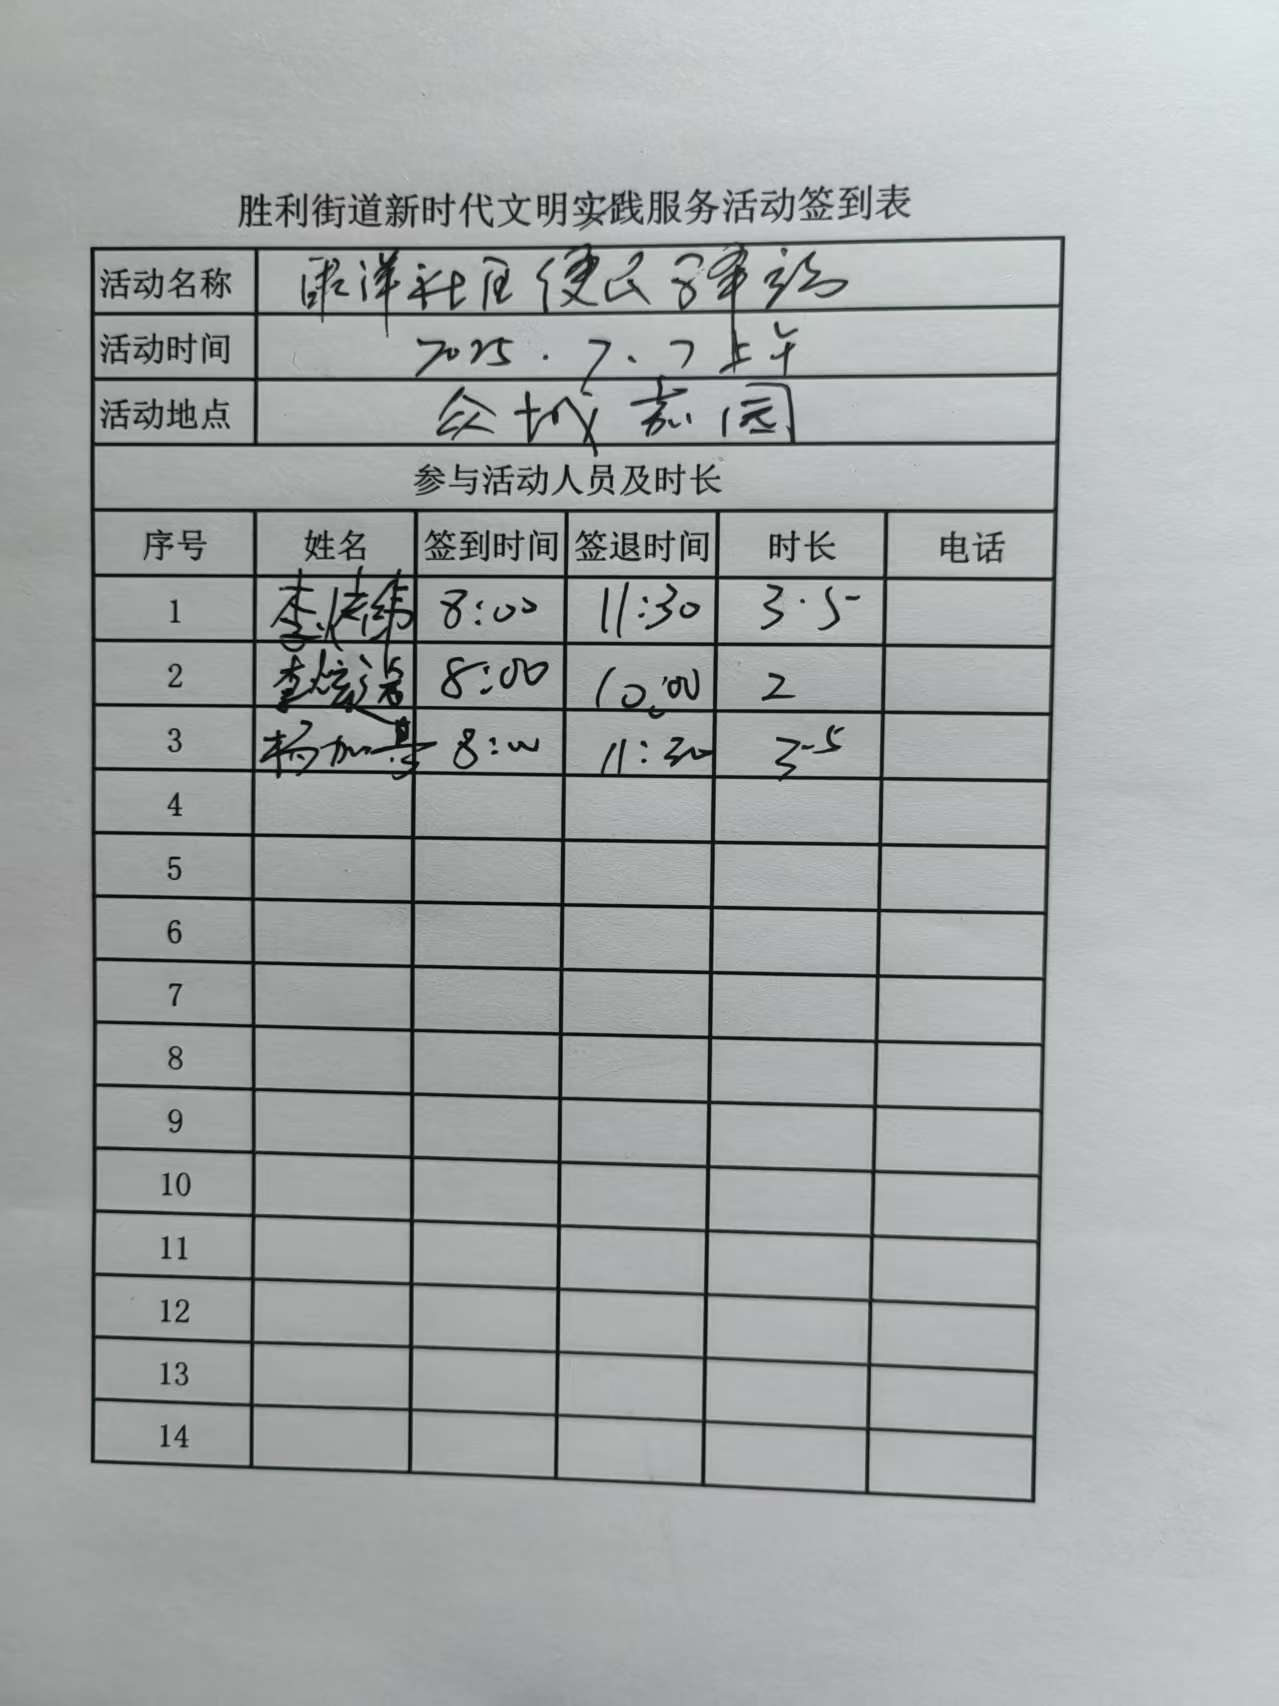 胜利街道新时代文明实践服务活动签到表
活动名称 社区便民
活动时间 2025.7.7上午
活动地点 众城嘉园
参与活动人员及时长
序号 姓名 签到时间 签退时间 时长 电话
1 李 8:00 11:30 3.5
2 李 8:00 10:00 2
3 杨加 8:00 11:30 3.5
4
5
6
7
8
9
10
11
12
13
14